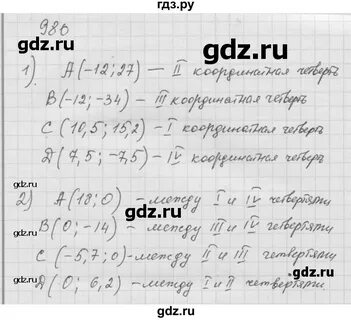 гдз.ру
986
1) A(-12; 27) — II координатная четверть
B(-12; -34) — III координатная четверть
C(10,5; 15,2) - I координатная четверть
D(7,5; -7,5) - IV координатная четверть
2) A(18; 0) - между I и IV четвертями
B(0; -14) - между III и IV четвертями
C(-5,7; 0) - между II и III четвертями
D(0; 6,2) - между I и II четвертями
gdz.ru
gdz.ru
gdz.ru
gdz.ru
gdz.ru
gdz.ru
gdz.ru
gdz.ru